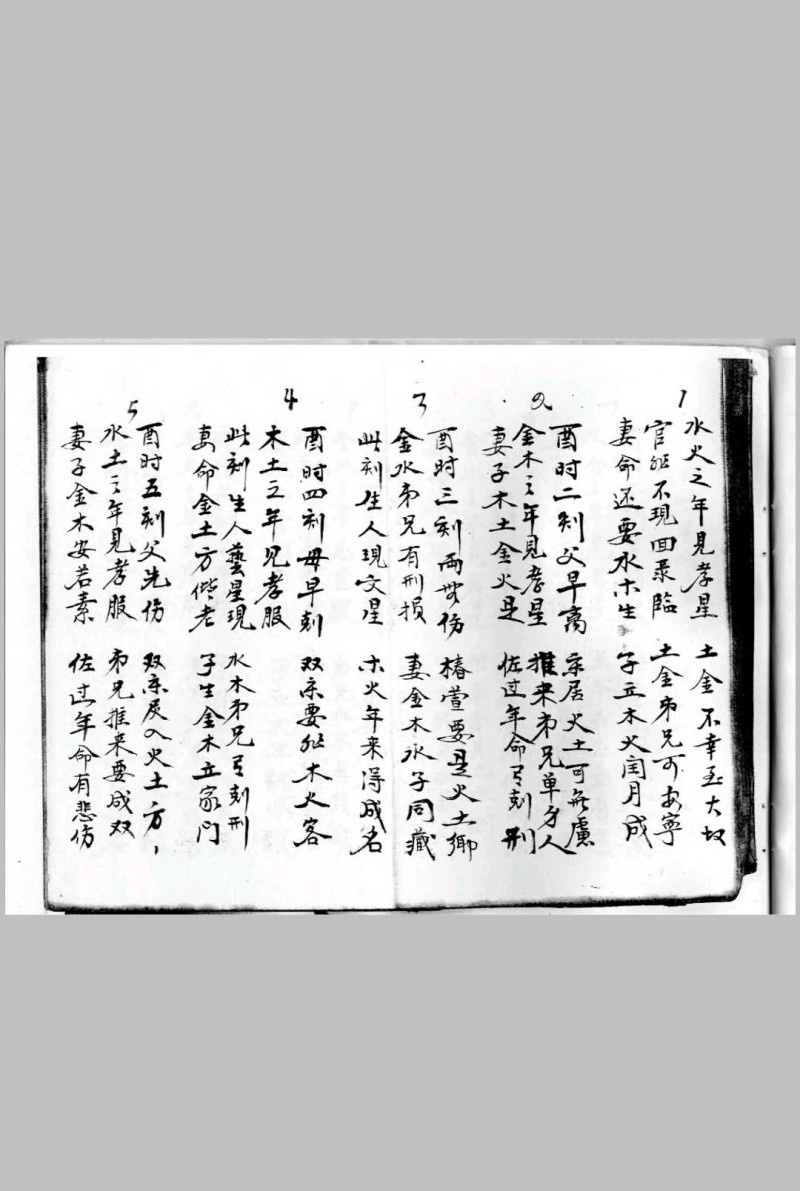 1
水火之年見孝星 土金不幸至大坟
官然不現回录臨 土金弟兄可安寧
妻命还要水木生 子立木火闰月成
2
酉时二刻父早离 亲居火土可无慮
金木之年見孝星 推来弟兄单身人
妻子木土金火是 佐过年命弓刻刑
3
酉时三刻两边伤 椿萱要是火土鄉
金水弟兄有刑损 妻金木水子同藏
此刻生人現文星 木火年来得成名
4
酉时四刻母早刻 双亲要然木火客
木土之年见孝服
此刻生人藝星現 水木弟兄弓刻刑
妻命金土方偕老 子生金木立家门
5
酉时五刻父先伤 双亲辰入火土方,
水土之年見孝服 弟兄推来要成双
妻子金木安若素 佐过年命有悲伤